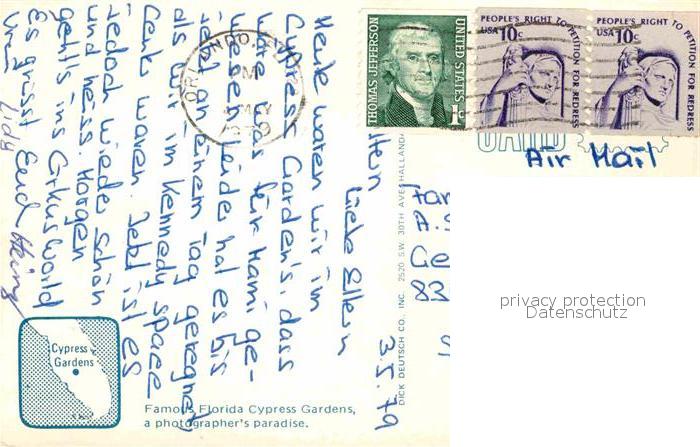 3.5.79
Liebe Eltern
Heute waren wir im
Cypress Garden's, dass
wäre was für Mami ge-
wesen. Leide hat es bis
jetzt an einem Tag geregnet
als wir im Kennedy Space
Centr waren. Jetzt ist es
jedoch wieder schön
und heiss. Morgen
geht's ins Cirkusworld
Es grüsst Euch Heinz
Lidy
THOMAS JEFFERSON
UNITED STATES
1c
PEOPLE'S RIGHT TO PETITION FOR REDRESS
USA 10c
PEOPLE'S RIGHT TO PETITION FOR REDRESS
USA 10c
ORLANDO
Air Mail
83
DICK DEUTSCH CO., INC. 2520 S.W. 30TH AVE HALLANDA
privacy protection
Datenschutz
Cypress
Gardens
Famous Florida Cypress Gardens,
a photographer's paradise.